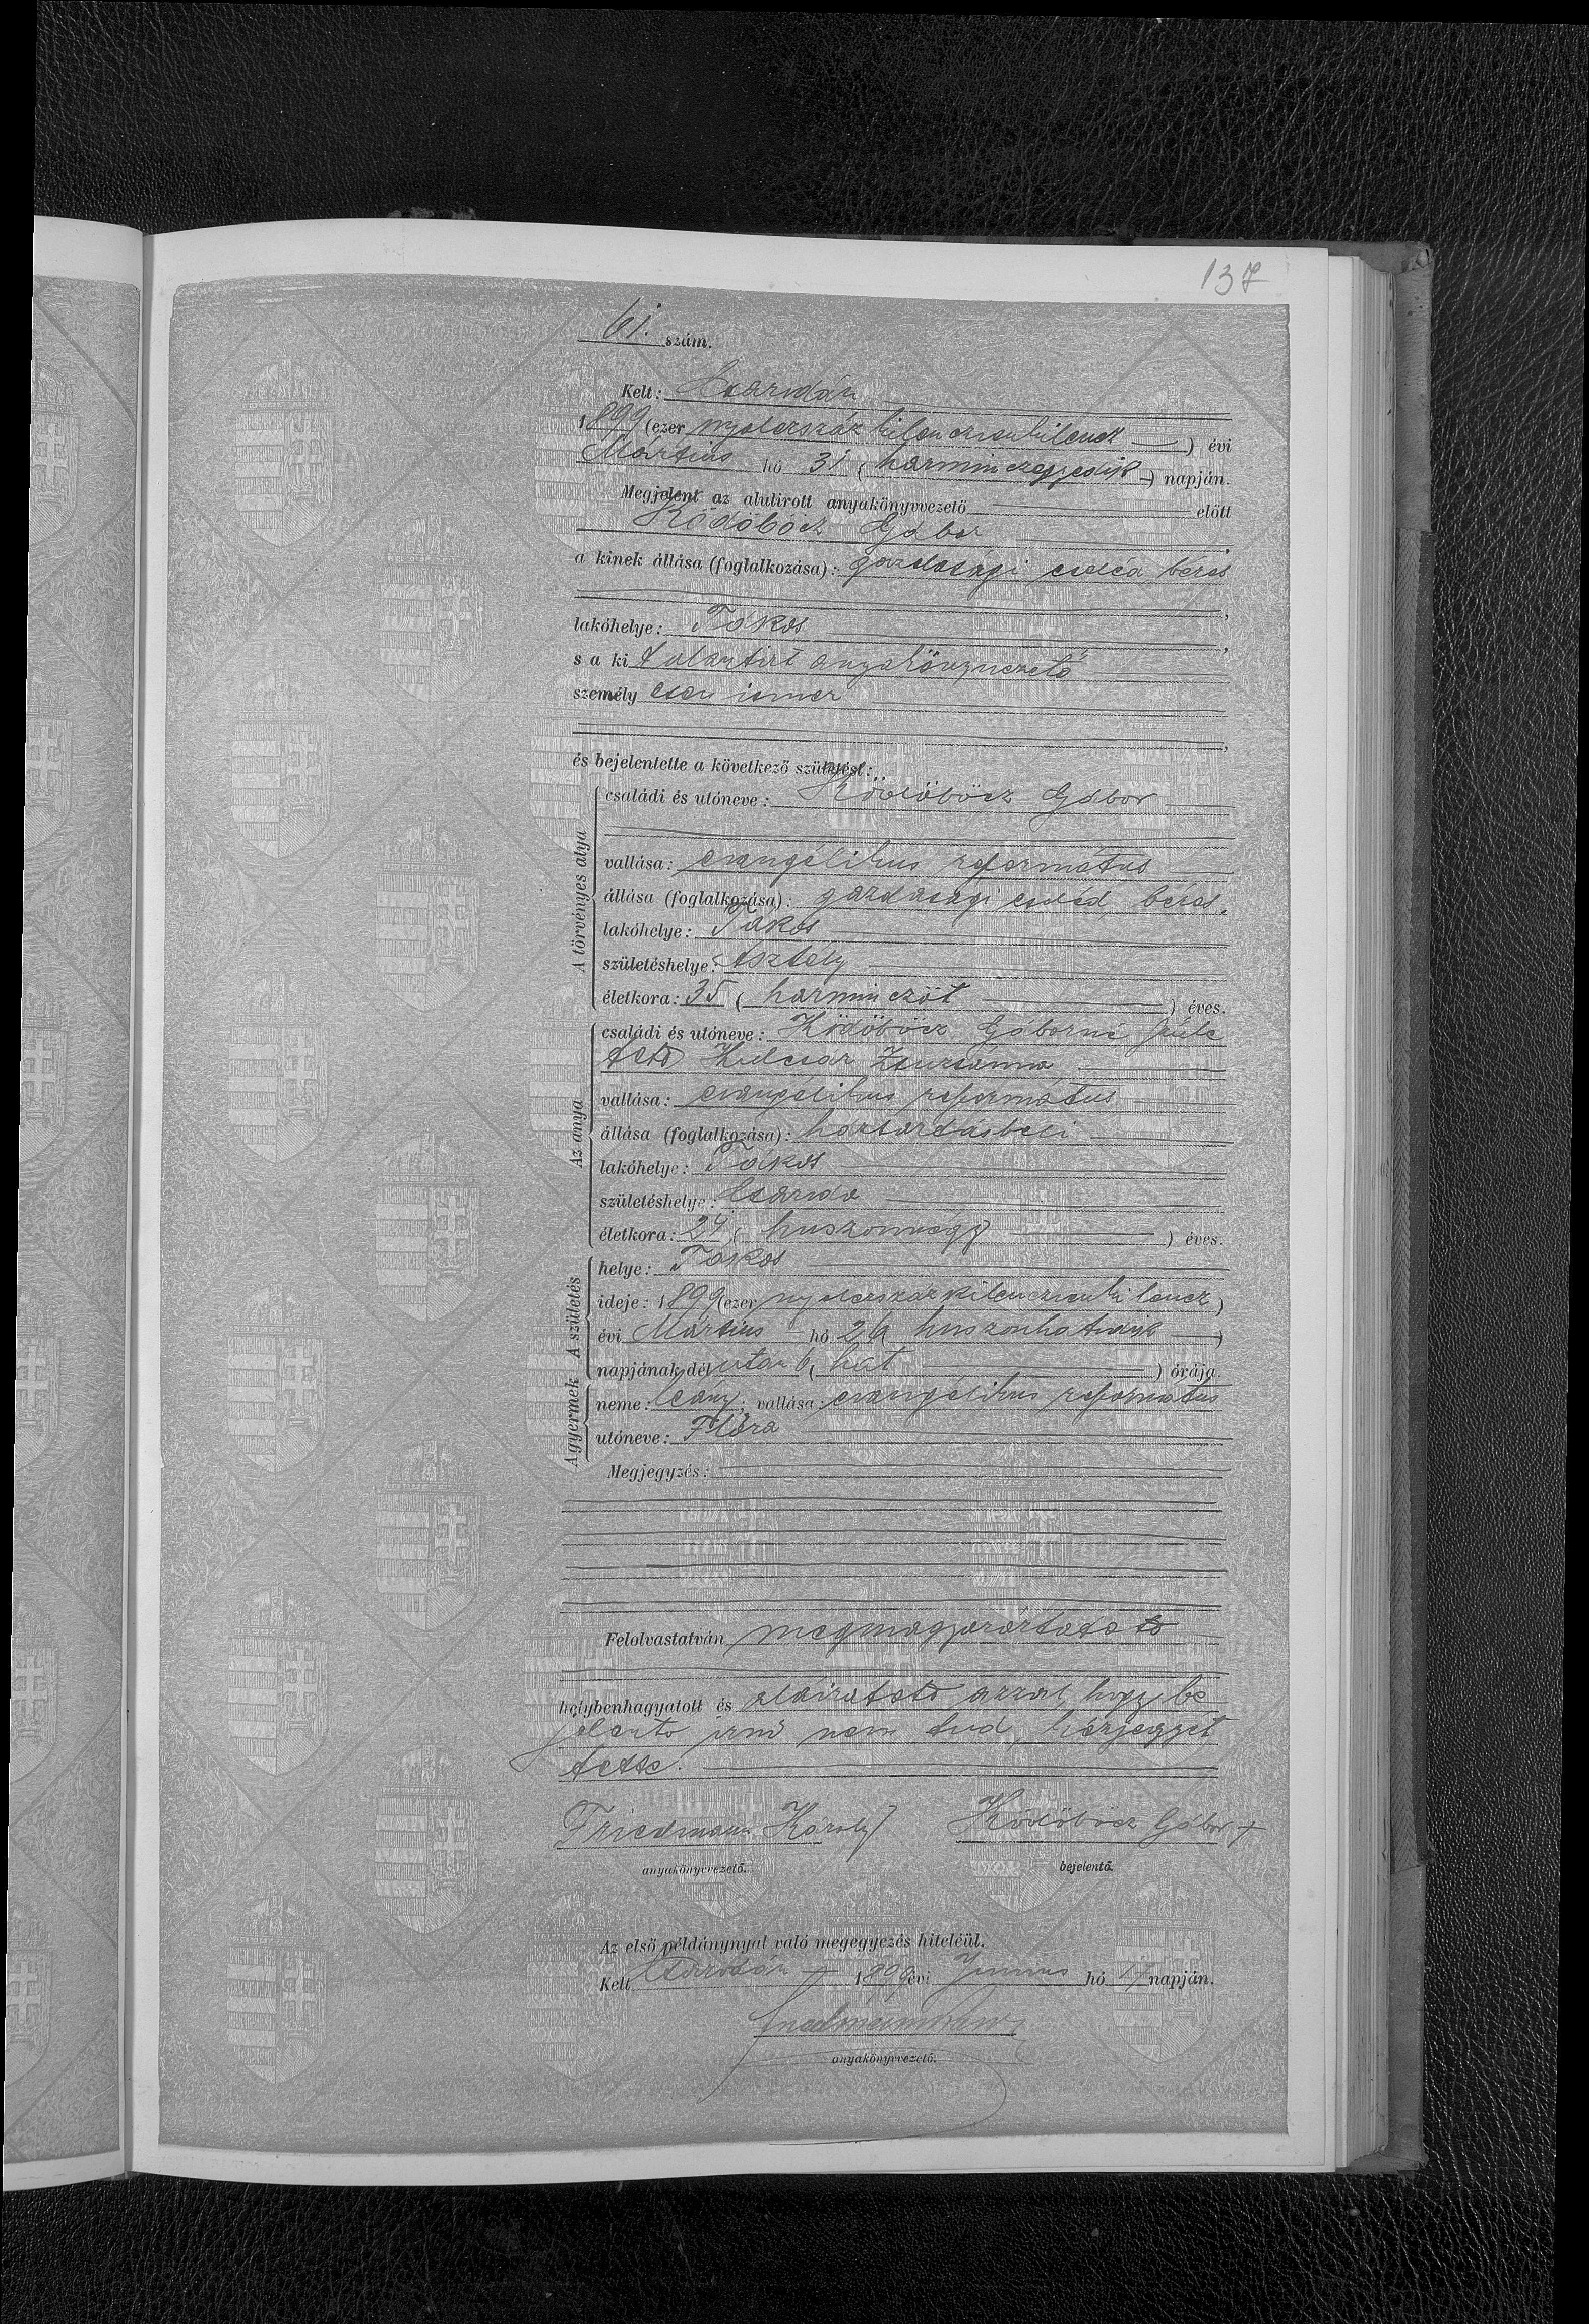 137
61. szám.
Kelt: Csarodán
1899 (ezer nyolczszáz kilenczvenkilencz) évi
Márczius hó 31 (harminczegyedik) napján.
Megjelent az alulirott anyakönyvvezető előtt
Ködöböcz Gábor,
a kinek állása (foglalkozása): gazdasági cseléd béres
lakóhelye: Tákos,
s a kit alantirt anyakönyvvezető
személyesen ismer
és bejelentette a következő születést:
A törvényes atya
családi és utóneve: Ködöböcz Gábor
vallása: evangélikus református
állása (foglalkozása): gazdasági cseléd, béres.
lakóhelye: Tákos
születéshelye: Asztély
életkora: 35 (harminczöt) éves.
Az anya
családi és utóneve: Ködöböcz Gáborné szüle
tett Kulcsár Zsuzsanna
vallása: evangélikus református
állása (foglalkozása): háztartásbeli
lakóhelye: Tákos
születéshelye: Csaroda
életkora: 24 (huszonnégy) éves.
A születés
helye: Tákos
ideje: 1899 (ezer nyolczszázkilenczvenkilencz)
évi Márczius hó 26 (huszonhatodik)
napjának délután 6 (hat) órája.
A gyermek
neme: leány; vallása: evangélikus református
utóneve: Flóra
Megjegyzés:
Felolvastatván, megmagyaráztatott
helybenhagyatott és aláiratott azzal, hogy be
jelentő irni nem tud, kézjegyét
tette.
Friedmann Károly
anyakönyvvezető.
Ködöböcz Gábor +
bejelentő.
Az első példánynyal való megegyezés hiteléül.
Kelt Csarodán 1899 évi Junius hó 17 napján.
anyakönyvvezető.